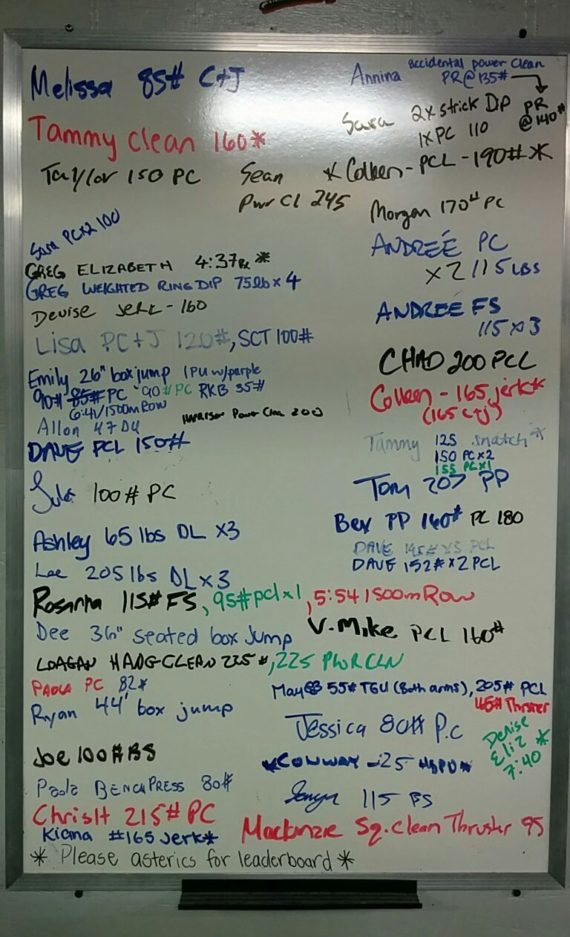 Melissa 85# C+J
Tammy clean 160*
Taylor 150 PC
Sean
Pwr Cl 245
Sara PCx2 100
GREG ELIZABETH 4:37Rx *
GREG WEIGHTED RING DIP 75lb x 4
Denise Jerk - 160
Lisa PC+J 120#, SCT 100#
Emily 26" box jump 1PU w/purple
90# 85# PC 90# PC RKB 35#
6:41/1500m Row
Allon 47 DU
HARRISON Power Clean 200
DAVE PCL 150#
100# PC
Ashley 65 lbs DL x3
Lee 205 lbs DL x 3
Rosanna 115# FS, 95# pcl x1, 5:54 1500m Row
Dee 36" seated box Jump
V. Mike PCL 160#
LOAGAN HANG CLEAN 235#, 225 PWR CLN
PAOLA PC 82#
Ryan 44' box jump
Joe 100# BS
Paola BENCH PRESS 80#
ChrisH 215# PC
Kiana #165 Jerk*
* Please asterics for leaderboard *
Annina accidental power clean
PR@135#
PR
@140#
Sara 2x strick Dip
1x PC 110
* Colleen - PCL - 190# *
Morgan 170# PC
ANDREÉ PC
x2 115 LBS
ANDREÉ FS
115 x 3
CHAD 200 PCL
Colleen - 165 jerk*
(165 c+j)
Tammy 125 snatch *
150 PC x2
155 PC x1
Tom 207 PP
Bex PP 160# PC 180
DAVE 145# x3 PCL
DAVE 152# x 2 PCL
55# TGU (Both arms), 205# PCL
115# Thruster
Jessica 80# P.C
Denise
Eliz *
7:40
*CONWAY - 25 HSPU*
115 FS
Mackenzie Sq. Clean Thruster 95